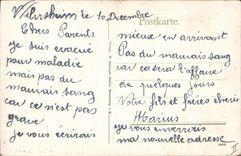 le 10 Decembre
Postkarte.
Chers Parents
je suis evacué
pour maladie
mais pas du
mauvais sang
car ce n'est pas
grave
je vous écrirais
mieux en arrivant
Pas du mauvais sang
car ce sera l'affaire
de quelques jours
Votre fils et frères chérie
Marius
je vous enverrais
ma nouvelle adresse